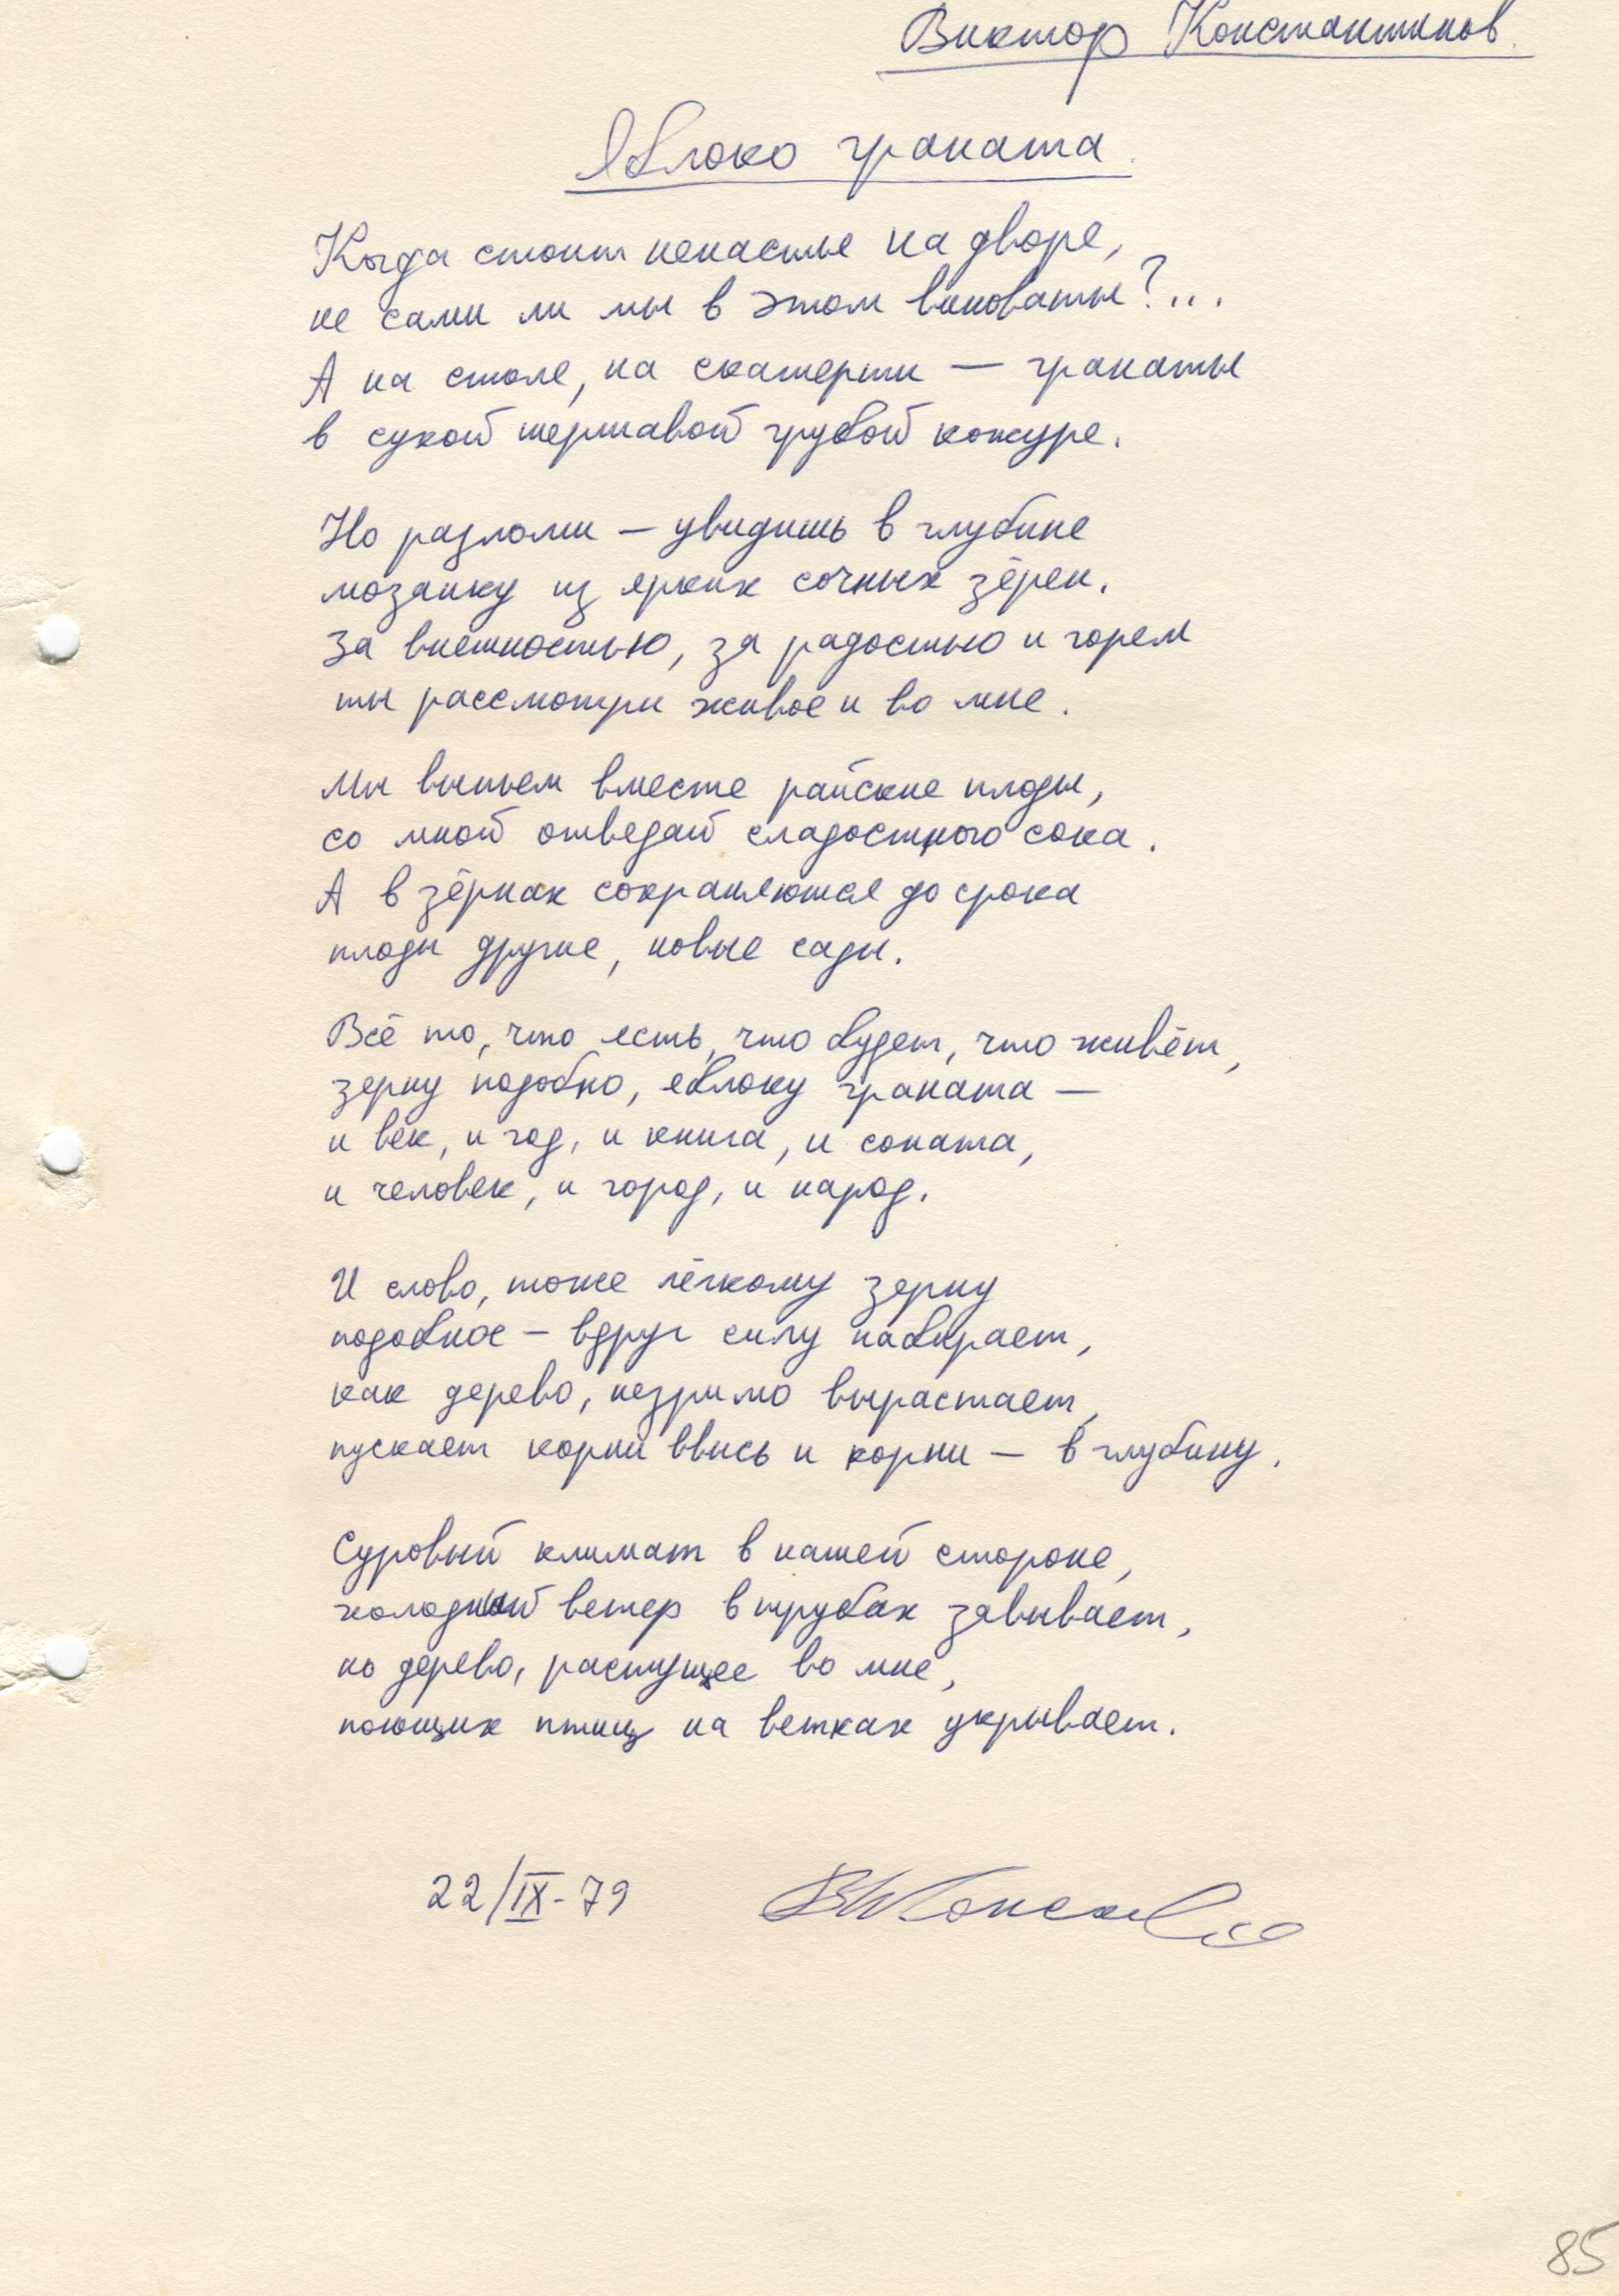 Виктор Константинов.
Яблоко граната.
Когда стоит ненастье на дворе,
не сами ли мы в этом виноваты?...
А на столе, на скатерти — гранаты
в сухой шершавой грубой кожуре.
Но разломи — увидишь в глубине
мозаику из ярких сочных зёрен.
За внешностью, за радостью и горем
ты рассмотри живое и во мне.
Мы выпьем вместе райские плоды,
со мной отведай сладостного сока.
А в зёрнах сохраняются до срока
плоды другие, новые сады.
Всё то, что есть, что будет, что живёт,
зерну подобно, яблоку граната —
и век, и год, и книга, и соната,
и человек, и город, и народ.
И слово, тоже лёгкому зерну
подобное — вдруг силу набирает,
как дерево, незримо вырастает,
пускает корни ввысь и корни — в глубину.
Суровый климат в нашей стороне,
холодный ветер в трубах завывает,
но дерево, растущее во мне,
поющих птиц на ветках укрывает.
22/IX-79
85